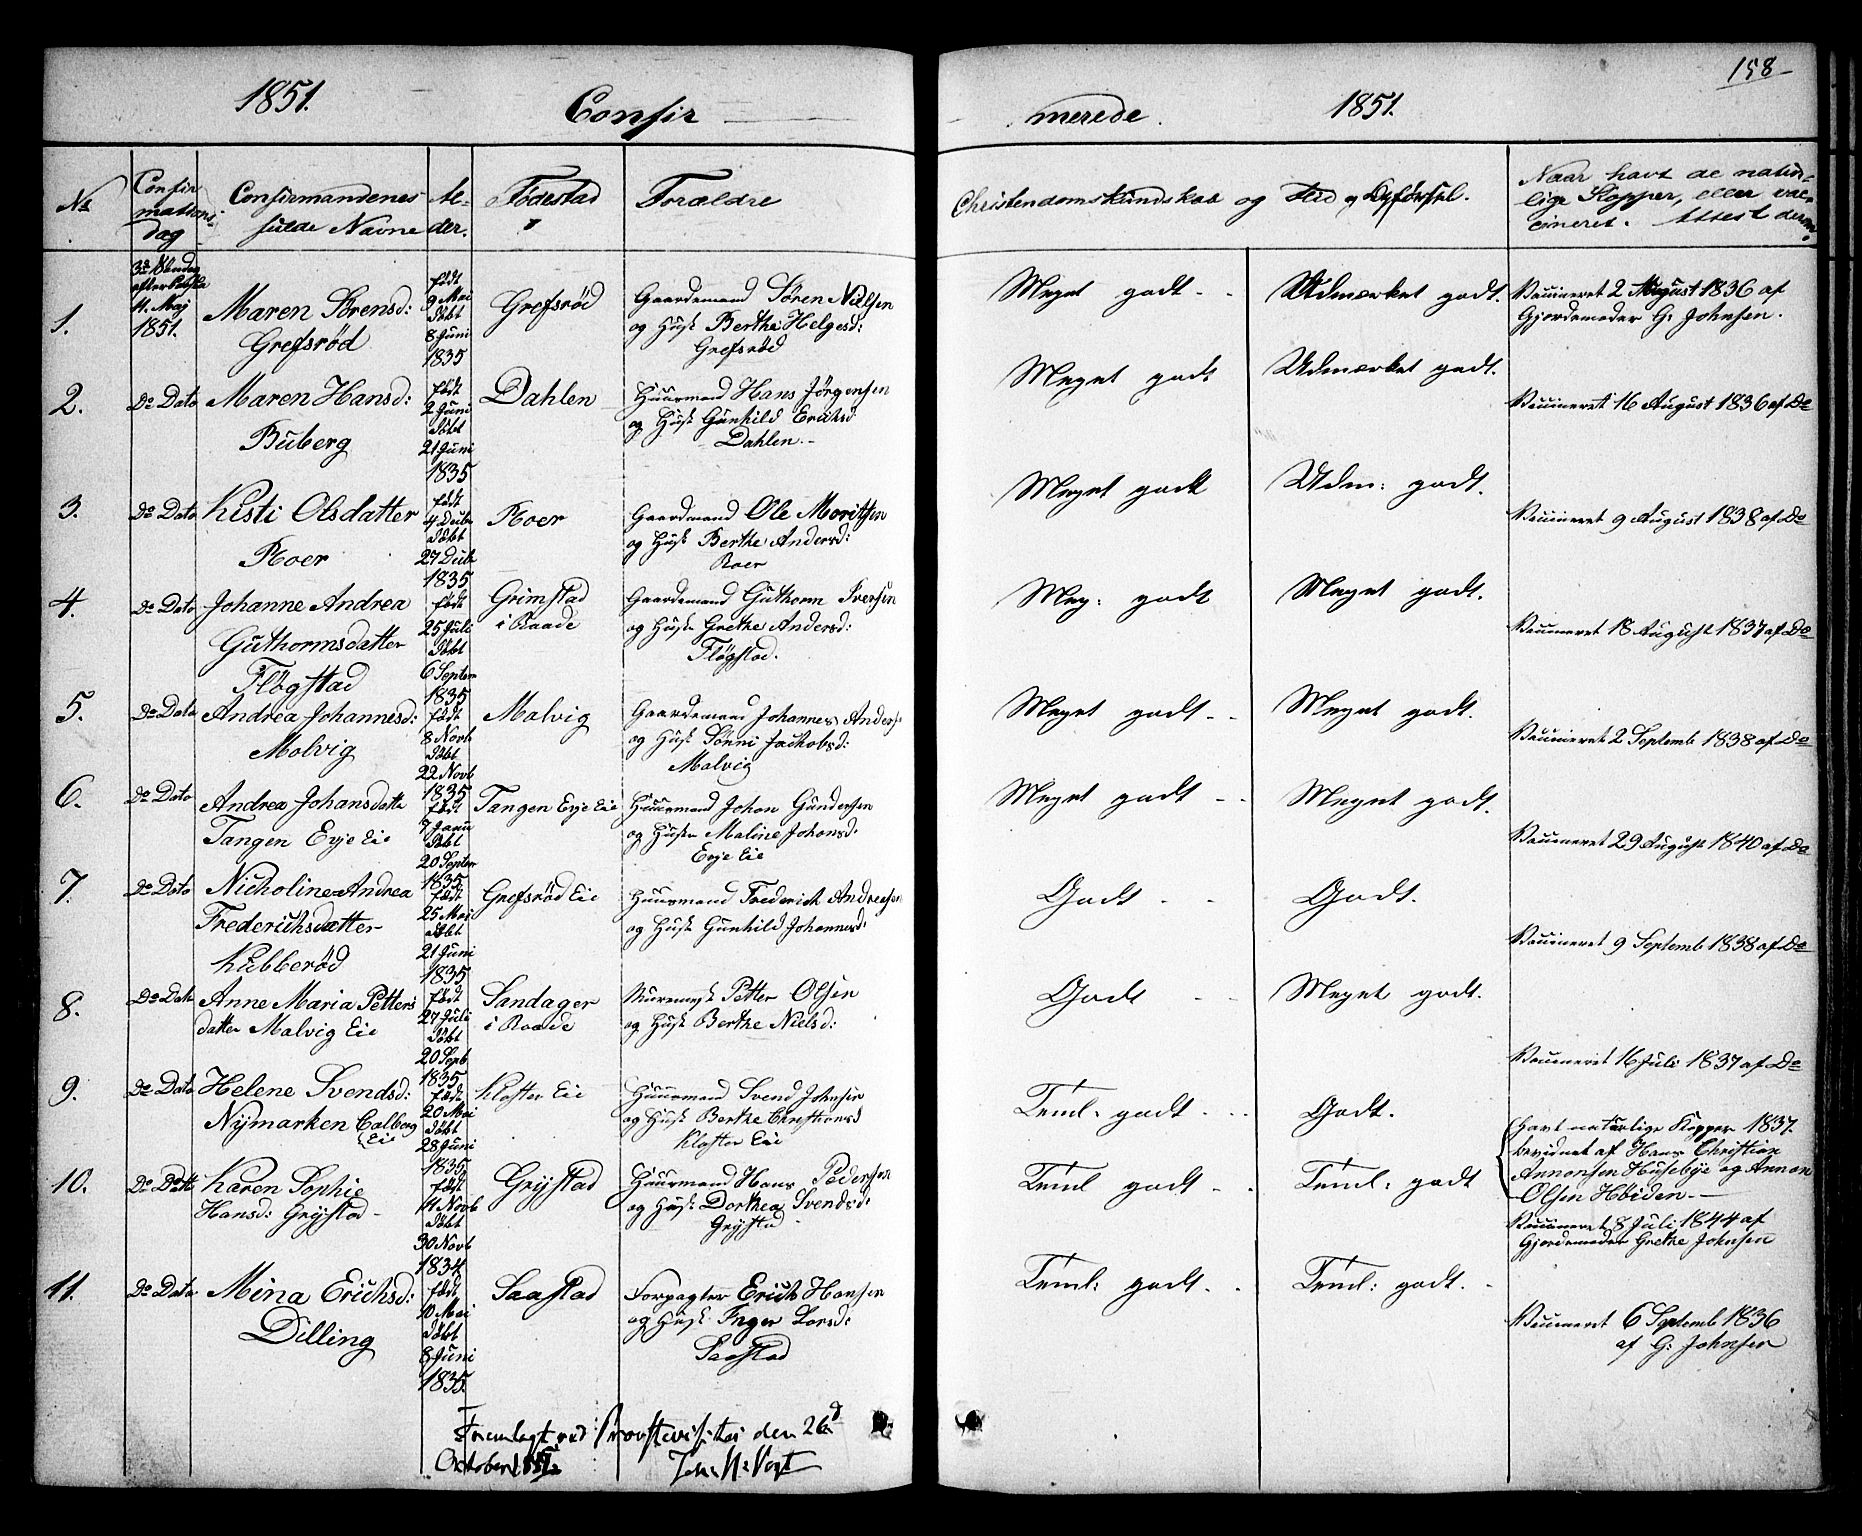 1851.
Confir
merede.
1851.
158
No
Confir
mations
dag
Confirmandenes
fulde Navne
Al-
der.
Fødestad
Forældre
Christendomskundskab og Flid og Opførsel.
Naar havt de natür-
lige Kopper, eller vac-
cineret. Attest derom.
1.
3die Søndag
efter Paaske
11. Maj
1851.
Maren Sörensd:
Grefsröd
født
9 Mai
døbt
8 Juni
1835
Grefsröd
Gaardmand Sören Nielsen
og Husk Berthe Helgesd:
Grefsröd
Meget godt
Udmærket godt.
Vaccineret 2 August 1836 af
Gjordemoder G: Johnsen.
2.
Do Dato
Maren Hansd:
Buberg
født
2 Juni
døbt
21 Juni
1835
Dahlen
Huusmand Hans Jörgensen
og Husk Gunhild Eriksd:
Dahlen.
Meget godt
Udmærket godt.
Vaccineret 16 August 1836 af Do
3.
Do Dato
Kisti Olsdatter
Roer
født
4 Decbr
døbt
27 Decbr
1835
Roer
Gaardmand Ole Moritsen
og Husk Berthe Andersd:
Roer
Meget godt
Udm: godt.
Vaccineret 9 August 1838 af Do
4.
Do Dato
Johanne Andrea
Guthormsdatter
Flögstad
født
25 Juli
døbt
6 Septem
1835
Grimstad
i Raade
Gaardmand Guthorm Iversen
og Husk Grethe Andersd:
Flögstad.
Meg: godt
Meget godt.
Vaccineret 18 August 1837 af Do
5.
Do Dato
Andrea Johannesd:
Molvig
født
8 Novb
døbt
22 Novb
1835
Malvig
Gaardmand Johannes Anders
og Husk Sönni Jachobsd:
Malvig
Meget godt
Meget godt.
Vaccineret 2 Septemb 1838 af Do
6.
Do Dato
Andrea Johansdatte
Tangen Evje Eie
født
7 Janu
døbt
20 Septem
1835
Tangen Evje Eie
Huusmand Johan Gundersen
og Huske Maline Johansd:
Evje Eie
Meget godt
Meget godt.
Vaccineret 29 August 1840 af Do
7.
Do Dato
Nicholine Andrea
Frederichsdatter
Kubberöd
født
25 Mai
døbt
21 Juni
1835
Grefsröd Eie
Huusmand Frederich Andresen
og Husk Gunhild Johannesd:
Godt
Godt.
Vaccineret 9 Septemb 1838 af Do
8.
Do Dato
Anne Maria Petters
datter Malvig Eie
født
27 Juli
døbt
20 Septb
1835
Sandager
i Raade
Petter Olsen
og Husk Berthe Nielsd:
Godt
Meget godt.
Vaccineret 16 Juli 1837 af Do
9.
Do Dato
Helene Svendsd:
Nymarken Calberg
Eie
født
20 Mai
døbt
28 Juni
1835
Kloster Eie
Huusmand Svend Johnsen
og Husk Berthe Christiansd
Kloster Eie
Teml: godt
Godt.
havt naturlige Kopper 1837.
bevidnet af Hans Christian
Annonsen Husebye og Annon
Olsen Höiden.
10.
Do Dato
Karen Sophie
Hansd: Grystad
født
14 Novb
døbt
30 Novb
1834
Grystad
Huusmand Hans Pedersen
og Husk Dorthea Svendsd:
Grystad
Teml godt
Teml: godt
Vaccineret 8 Juli 1844 af
Gjordemoder Grethe Johnsen
11.
Do Dato
Mina Erichsd:
Dilling
født
10 Mai
døbt
8 Juni
1835
Saastad
Forpagter Erich Hansen
og Husk Inger Larsd:
Saastad
Teml: godt.
Teml: godt.
Vaccineret 6 Septemb 1836
af G: Johnsen
Fremlagt ved Provstevisitas den 26d
October